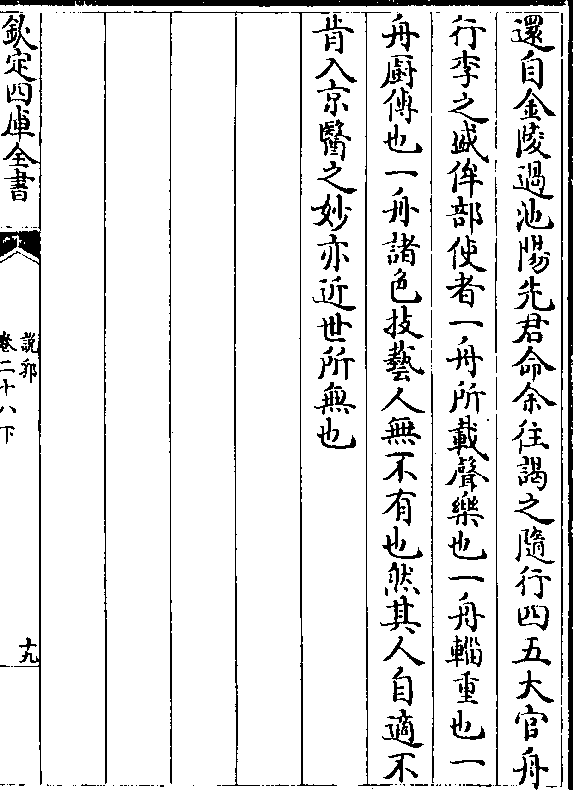 還自金陵過池陽先君命余往謁之隨行四五大官舟
行李之盛侔部使者一舟所載聲樂也一舟輜重也一
舟廚傳也一舟諸色技藝人無不有也然其人自適不
肯入京醫之妙亦近世所無也
欽定四庫全書
說郛
卷二十八下
十九